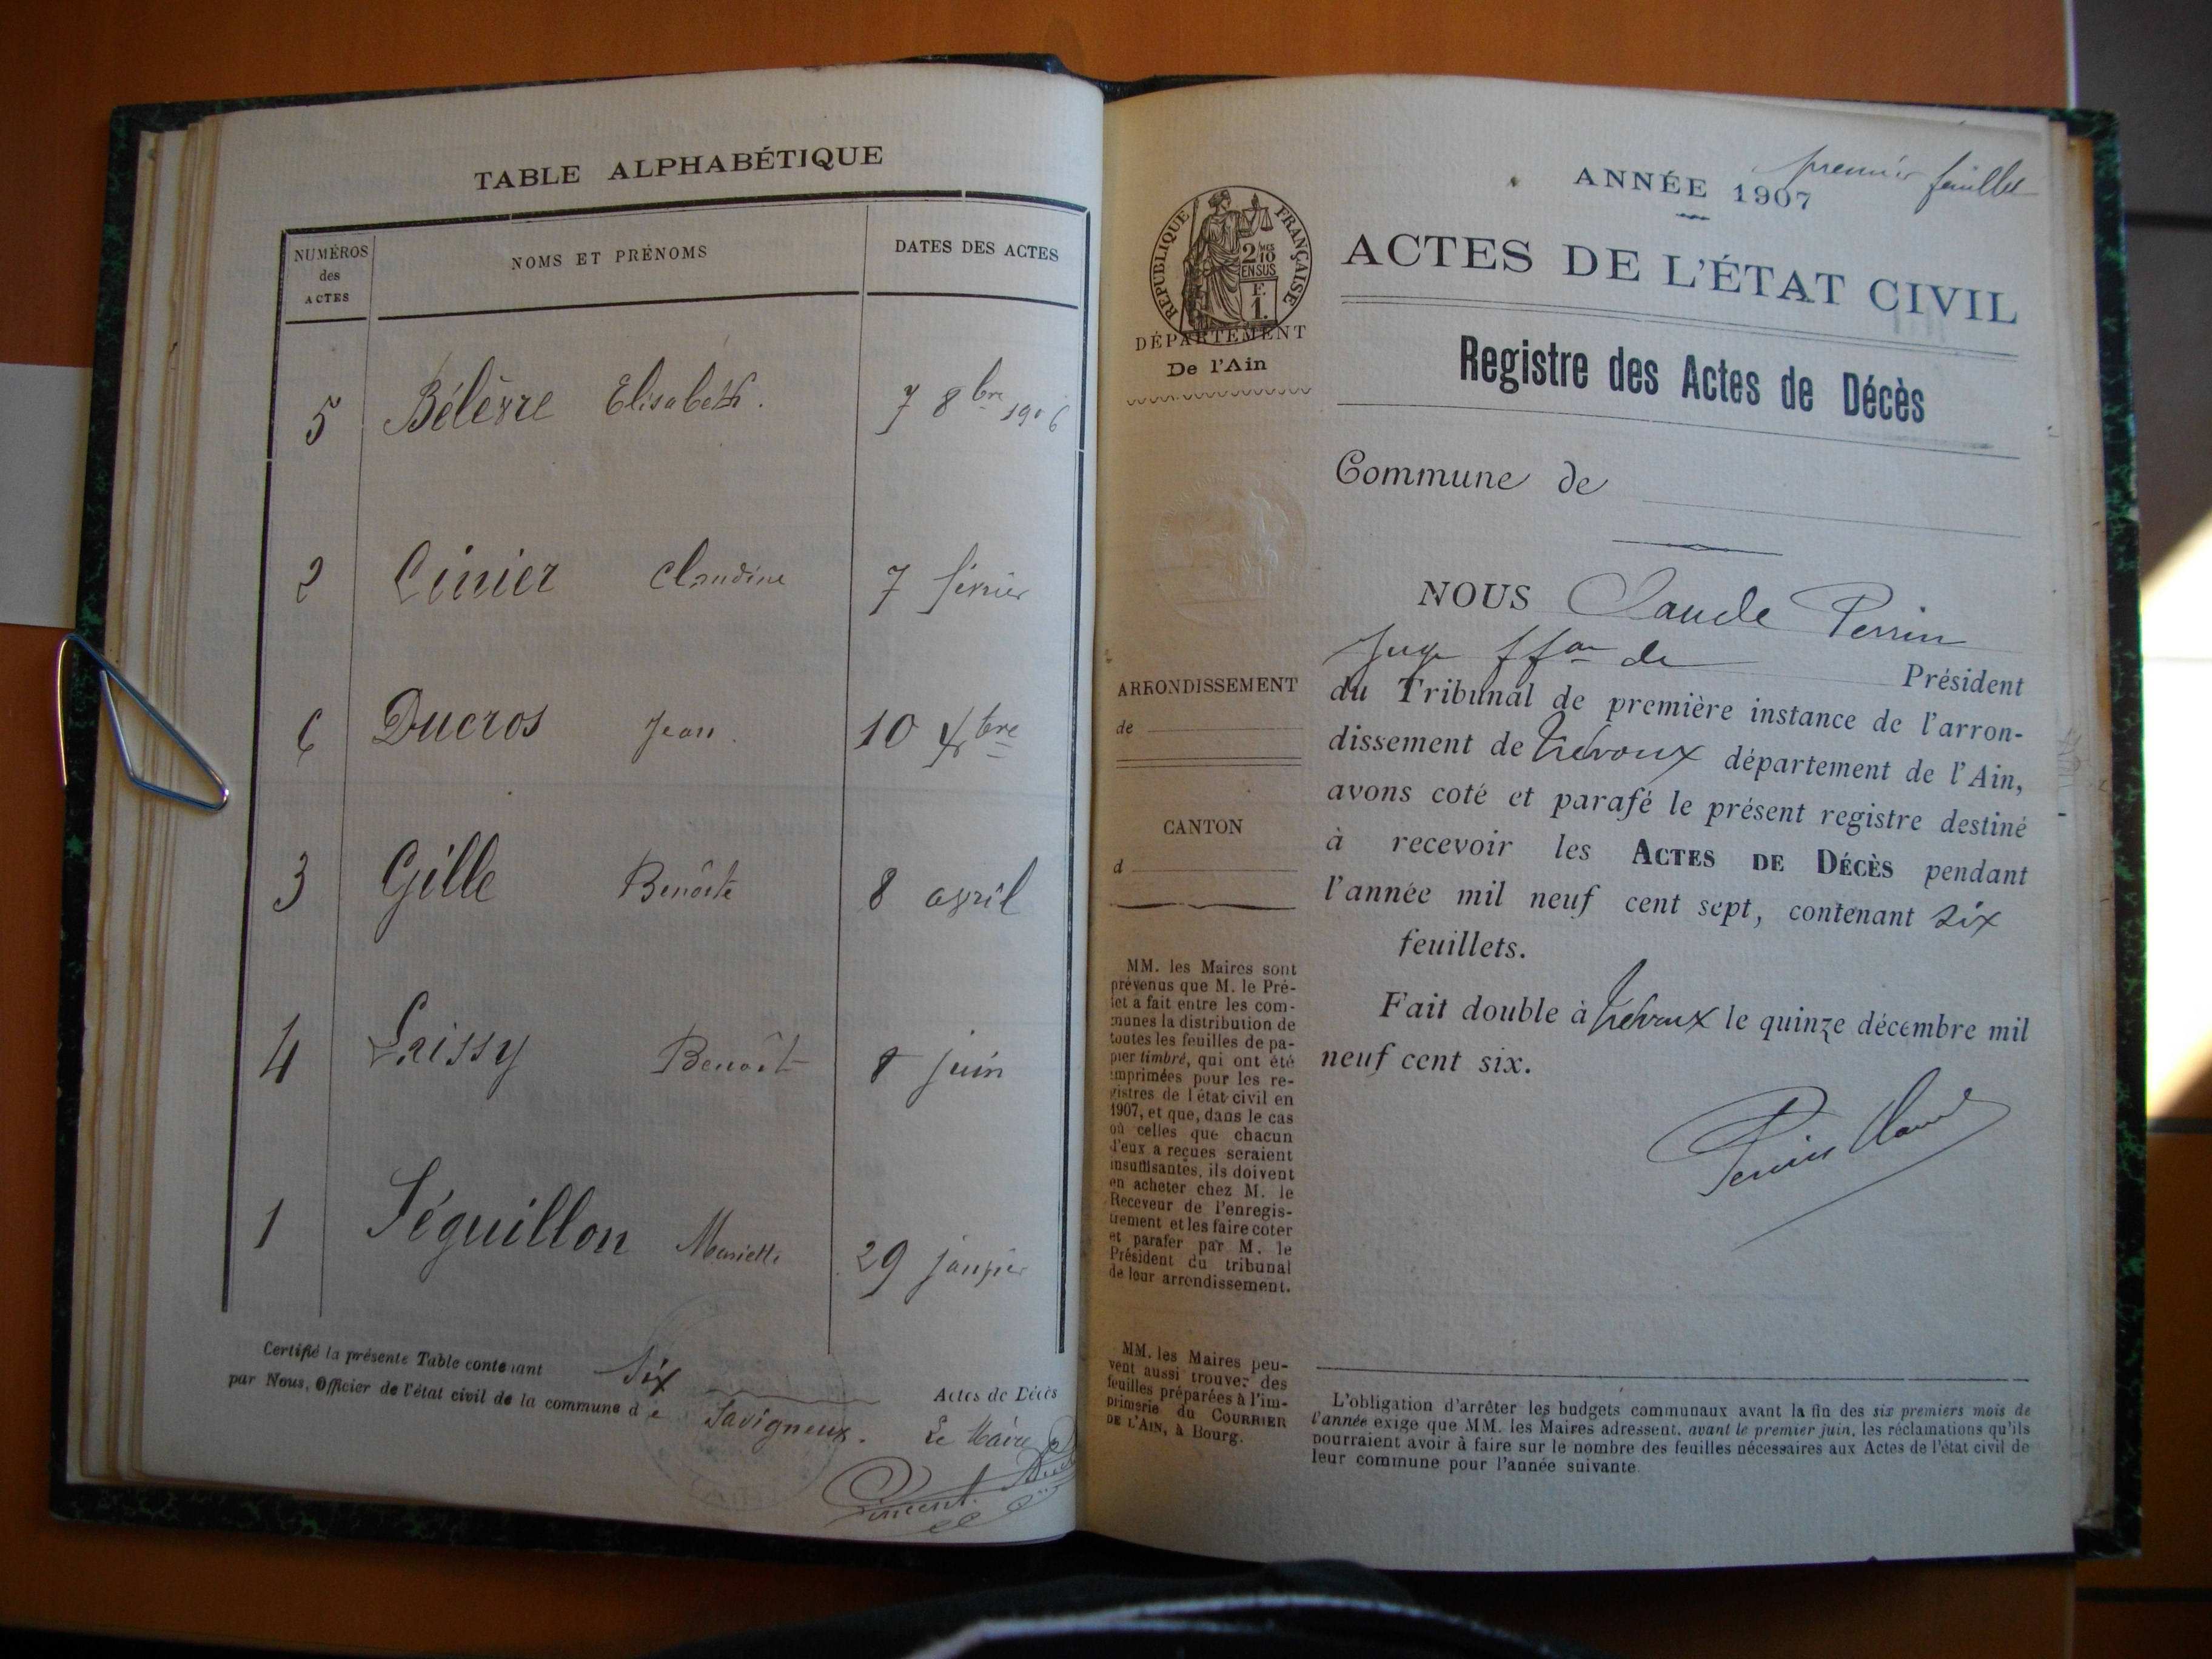 TABLE ALPHABÉTIQUE
NUMÉROS
des
ACTES
NOMS ET PRÉNOMS
DATES DES ACTES
5 Bélèvre Elisabeth. 7 8bre 1906
2 Cinier Claudine 7 février
6 Ducros Jean. 10 Xbre
3 Gille Benôite 8 avril
4 Laissy Benoît 8 juin
1 Séguillon Mariette 29 janvier
Certifié la présente Table contenant Six Actes de Décès
par Nous, Officier de l'état civil de la commune de Savigneux.
Le Maire
Vincent
premier feuillet
ANNÉE 1907
RÉPUBLIQUE FRANÇAISE
2/10 MES
EN SUS
F.
1.
DÉPARTEMENT
De l'Ain
ACTES DE L'ÉTAT CIVIL
Registre des Actes de Décès
Commune de
NOUS Claude Perrin
Juge ffon de Président
du Tribunal de première instance de l'arron-
dissement de Trévoux département de l'Ain,
avons coté et parafé le présent registre destiné
à recevoir les ACTES DE DÉCÈS pendant
l'année mil neuf cent sept, contenant six
feuillets.
Fait double à Trévoux le quinze décembre mil
neuf cent six.
Perrin Claude
ARRONDISSEMENT
de
CANTON
d
MM. les Maires sont
prévenus que M. le Pré-
fet a fait entre les com-
munes la distribution de
toutes les feuilles de pa-
pier timbré, qui ont été
imprimées pour les re-
gistres de l'état civil en
1907, et que, dans le cas
où celles que chacun
d'eux a reçues seraient
insuffisantes, ils doivent
en acheter chez M. le
Receveur de l'enregis-
trement et les faire coter
et parafer par M. le
Président du tribunal
de leur arrondissement.
MM. les Maires peu-
vent aussi trouver des
feuilles préparées à l'im-
primerie du COURRIER
DE L'AIN, à Bourg.
L'obligation d'arrêter les budgets communaux avant la fin des six premiers mois de
l'année exige que MM. les Maires adressent, avant le premier juin, les réclamations qu'ils
pourraient avoir à faire sur le nombre des feuilles nécessaires aux Actes de l'état civil de
leur commune pour l'année suivante.